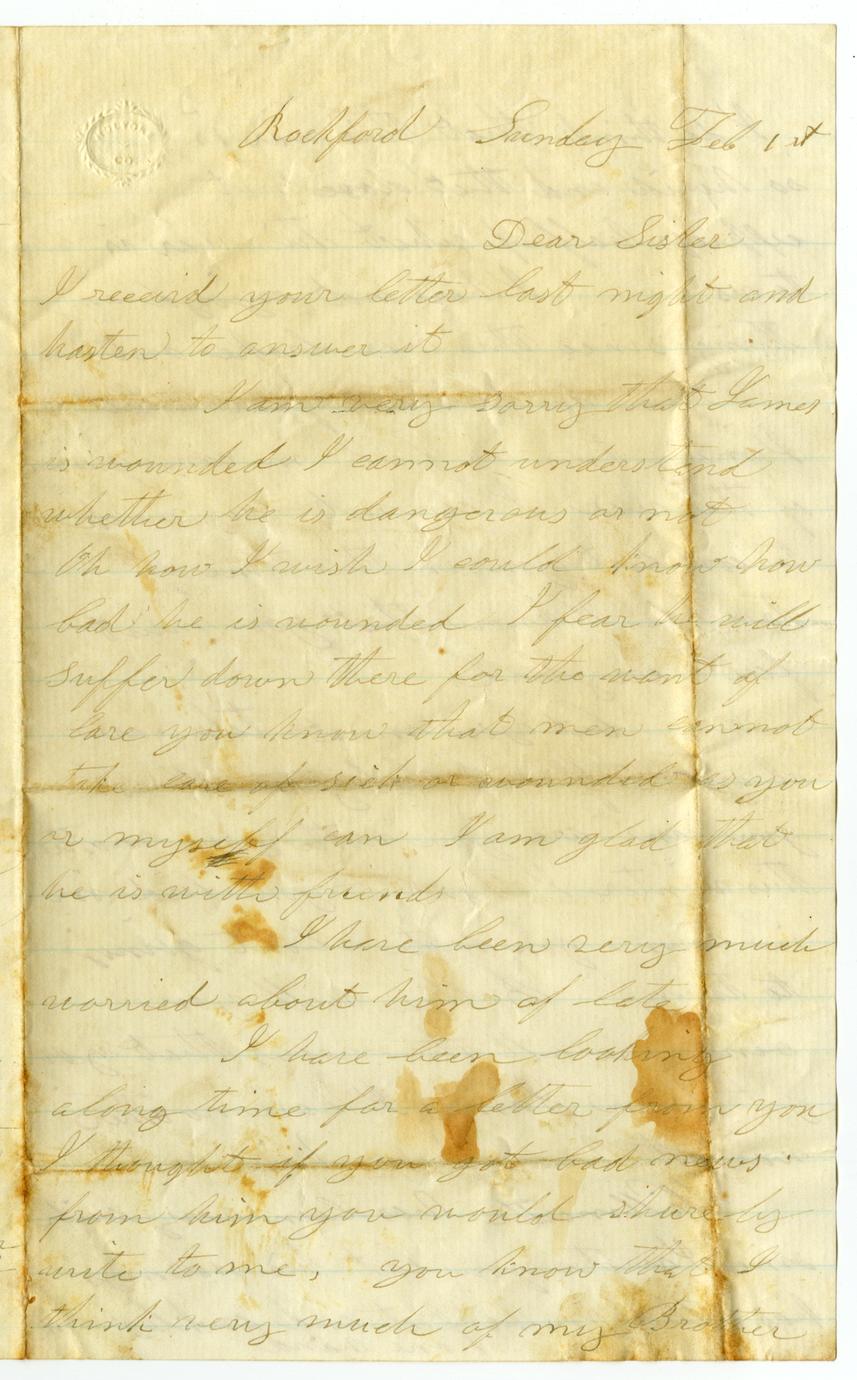 Rockford Sunday Feb 1st
Dear Sister
I receivd your letter last night and
hasten to answer it
I am very sorry that James
is wounded I cannot understand
whether he is dangerous or not
Oh how I wish I could know how
bad he is wounded I fear he will
suffer down there for the want of
care you know that men cannot
take care of sick or wounded as you
or myself can I am glad that
he is with friends
I have been very much
worried about him of late
I have been looking
along time for a letter from you
I thought if you got bad news
from him you would shurely
write to me, you know that I
think very much of my Brother